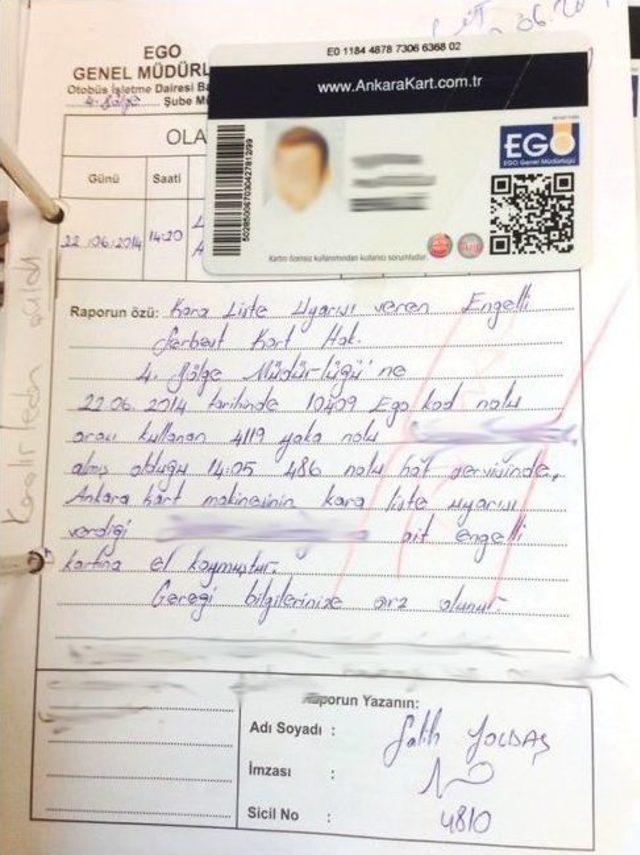 06.20
EGO
GENEL MÜDÜRL
Otobüs İşletme Dairesi Ba
4. Bölge Şube M
E0 1184 4878 7306 6368 02
www.AnkaraKart.com.tr
EGO
EGO Genel Müdürlüğü
Kartın özensiz kullanımından kullanıcı sorumludur.
OLA
Günü Saati
22.06.2014 14:20
Raporun özü: Kara Liste Uyarısı veren Engelli
Serbest Kart Hak.
4. Bölge Müdürlüğü'ne
22.06.2014 tarihinde 10409 Ego kod nolu
aracı kullanan 4119 yaka nolu
almış olduğu 14:05 486 nolu hat servisinde,
Ankara kart makinesinin kara liste uyarısı
verdiği ait engelli
kartına el koymuştur.
Gereği bilgilerinize arz olunur.
Raporun Yazanın:
Adı Soyadı : Salih YOLDAŞ
İmzası :
Sicil No : 4810